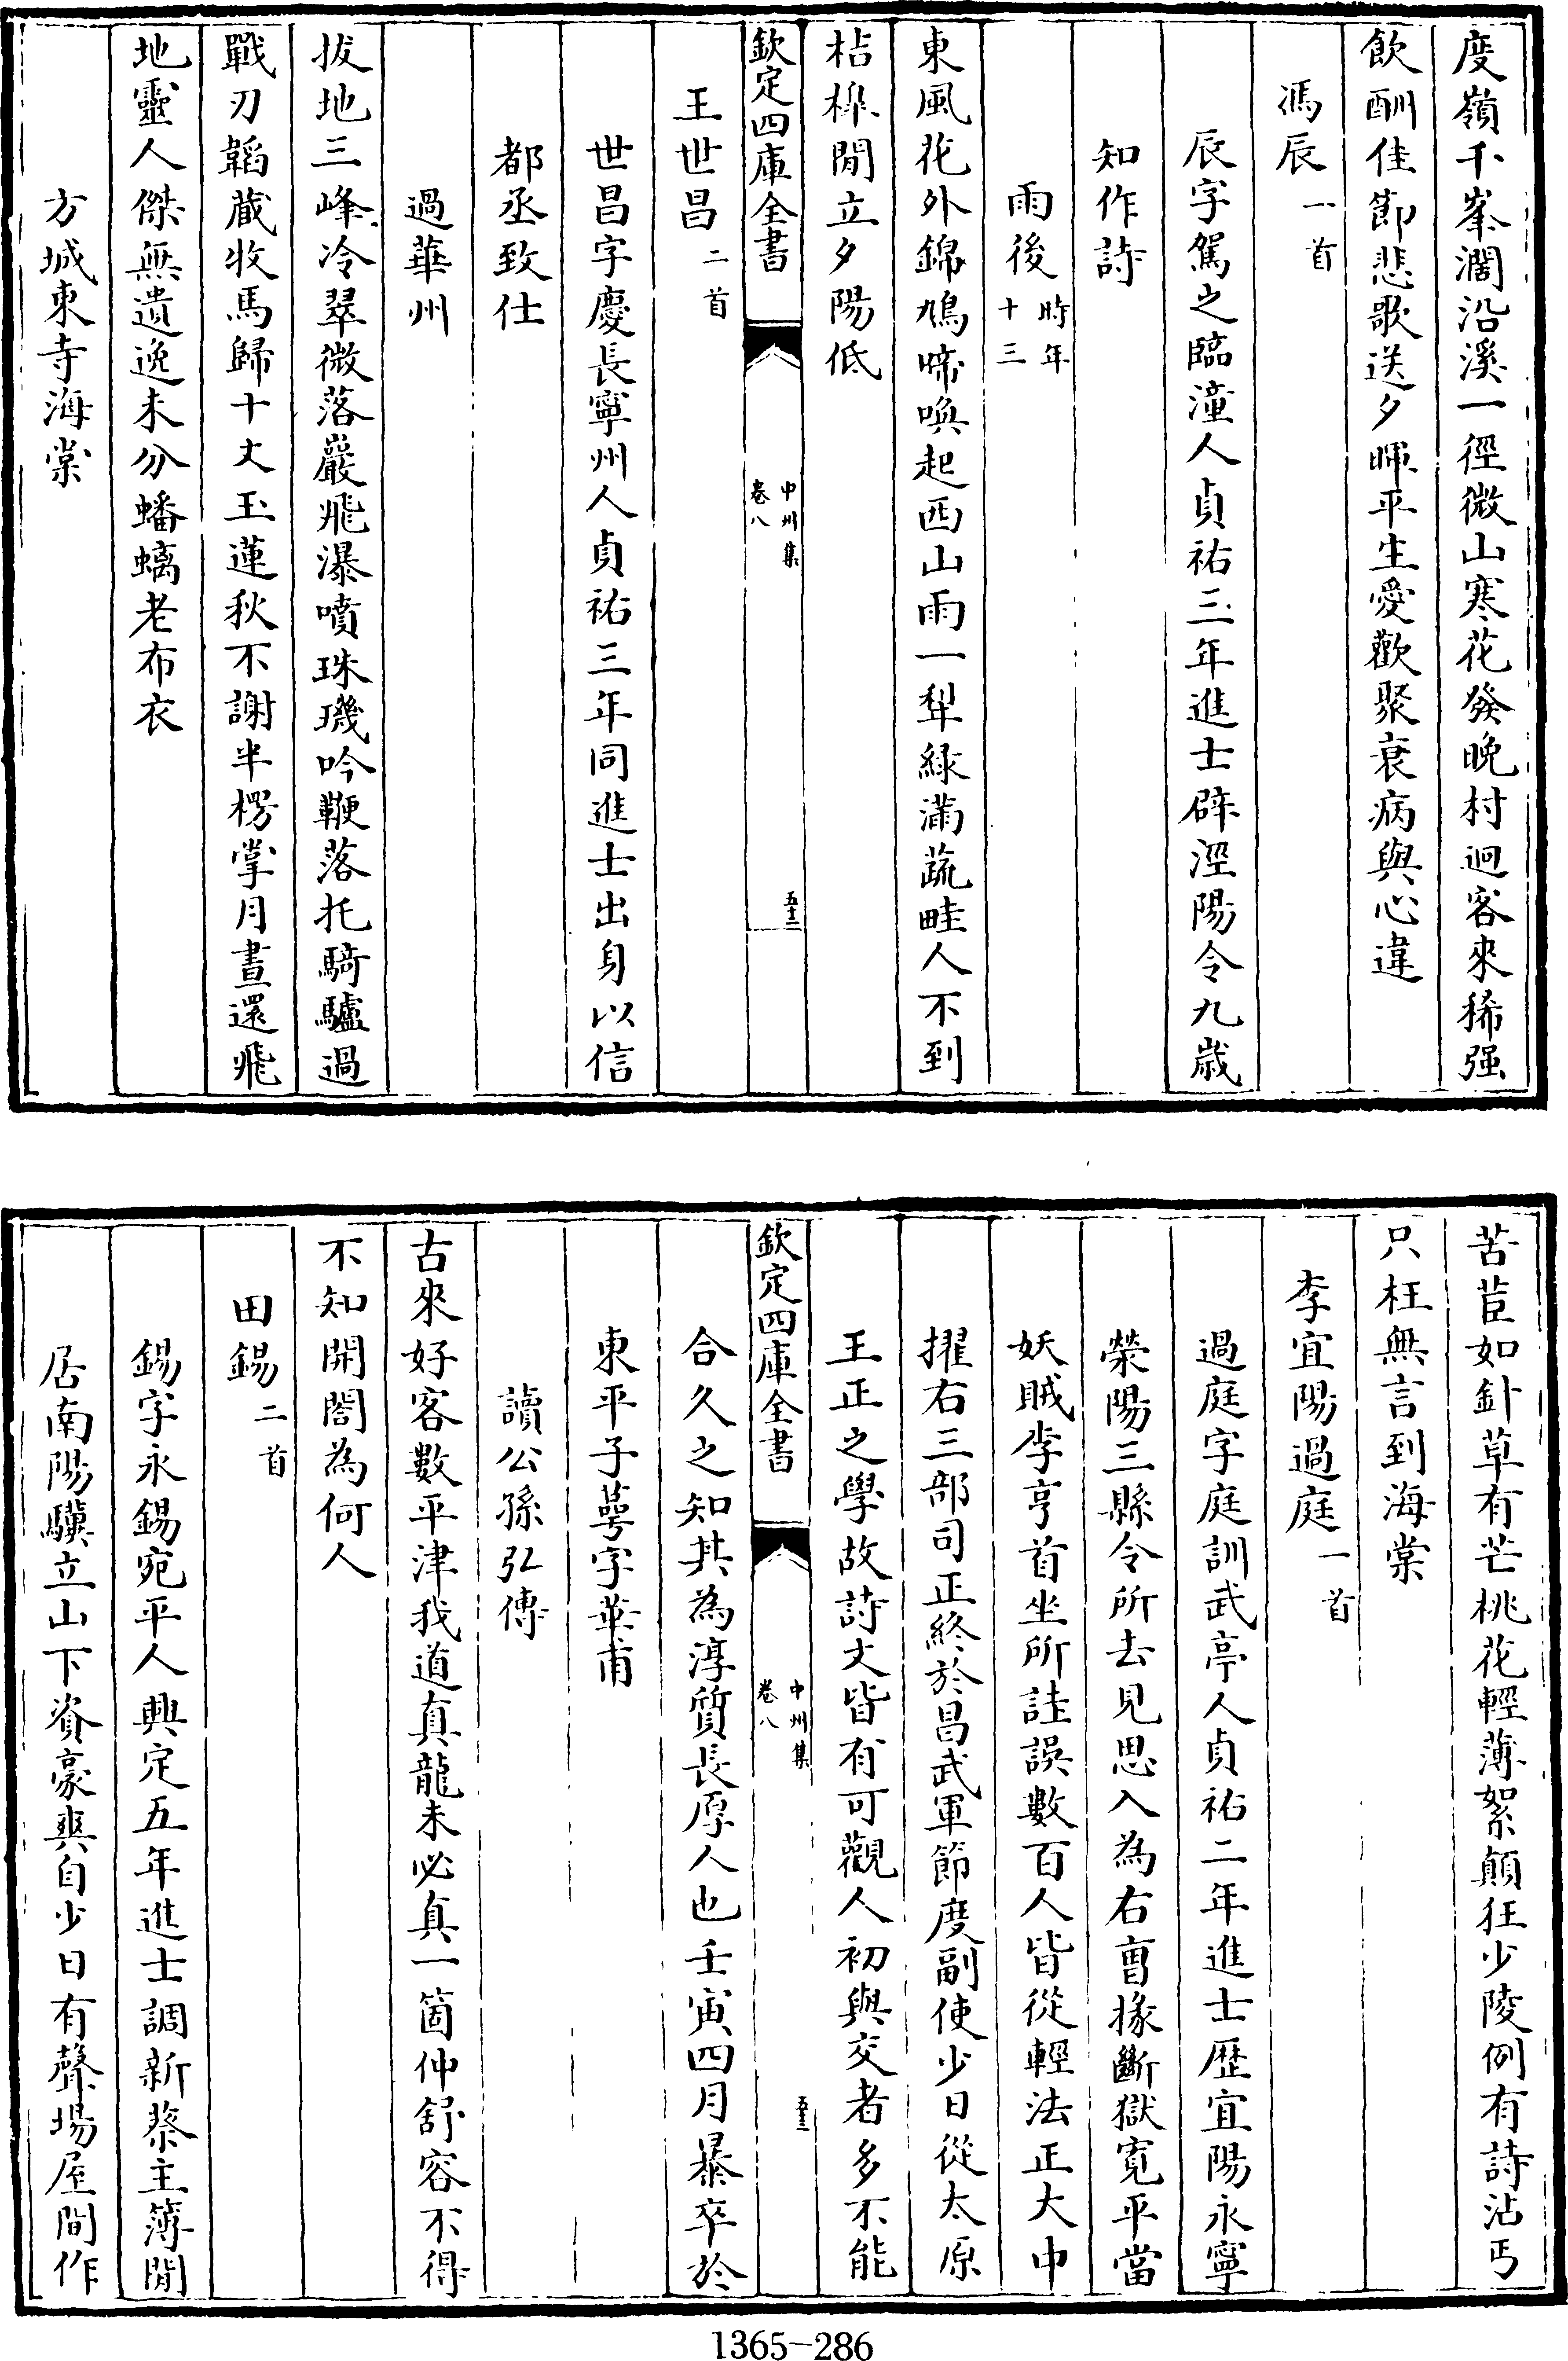 度嶺千峯濶沿溪一徑微山寒花發晚村迥客來稀强
飲酬佳節悲歌送夕暉平生愛歡聚衰病與心違
馮辰一首
辰字駕之臨潼人貞祐三年進士辟涇陽令九歲
知作詩
雨後時年十三
東風花外錦鳩啼喚起西山雨一犂綠滿蔬畦人不到
桔槹閒立夕陽低
欽定四庫全書
中州集
卷八
五十二
王世昌二首
世昌字慶長寧州人貞祐三年同進士出身以信
都丞致仕
過華州
拔地三峰冷翠微落巖飛瀑噴珠璣吟鞭落托騎驢過
戰刃韜藏收馬歸十丈玉蓮秋不謝半楞掌月晝還飛
地靈人傑無遺逸未分蟠螭老布衣
方城東寺海棠
苦苣如針草有芒桃花輕薄絮顛狂少陵例有詩沾丐
只枉無言到海棠
李宜陽過庭一首
過庭字庭訓武亭人貞祐二年進士歷宜陽永寧
滎陽三縣令所去見思入為右曹掾斷獄寬平當
妖賊李亨首坐所詿誤數百人皆從輕法正大中
擢右三部司正終於昌武軍節度副使少日從太原
王正之學故詩文皆有可觀人初與交者多不能
欽定四庫全書
中州集
卷八
五十三
合久之知其為淳質長原人也壬寅四月暴卒於
東平子萼字華甫
讀公孫弘傳
古來好客數平津我道真龍未必真一箇仲舒容不得
不知開閤為何人
田錫二首
錫字永錫宛平人興定五年進士調新蔡主簿閒
居南陽驥立山下資豪爽自少日有聲場屋間作
1365-286